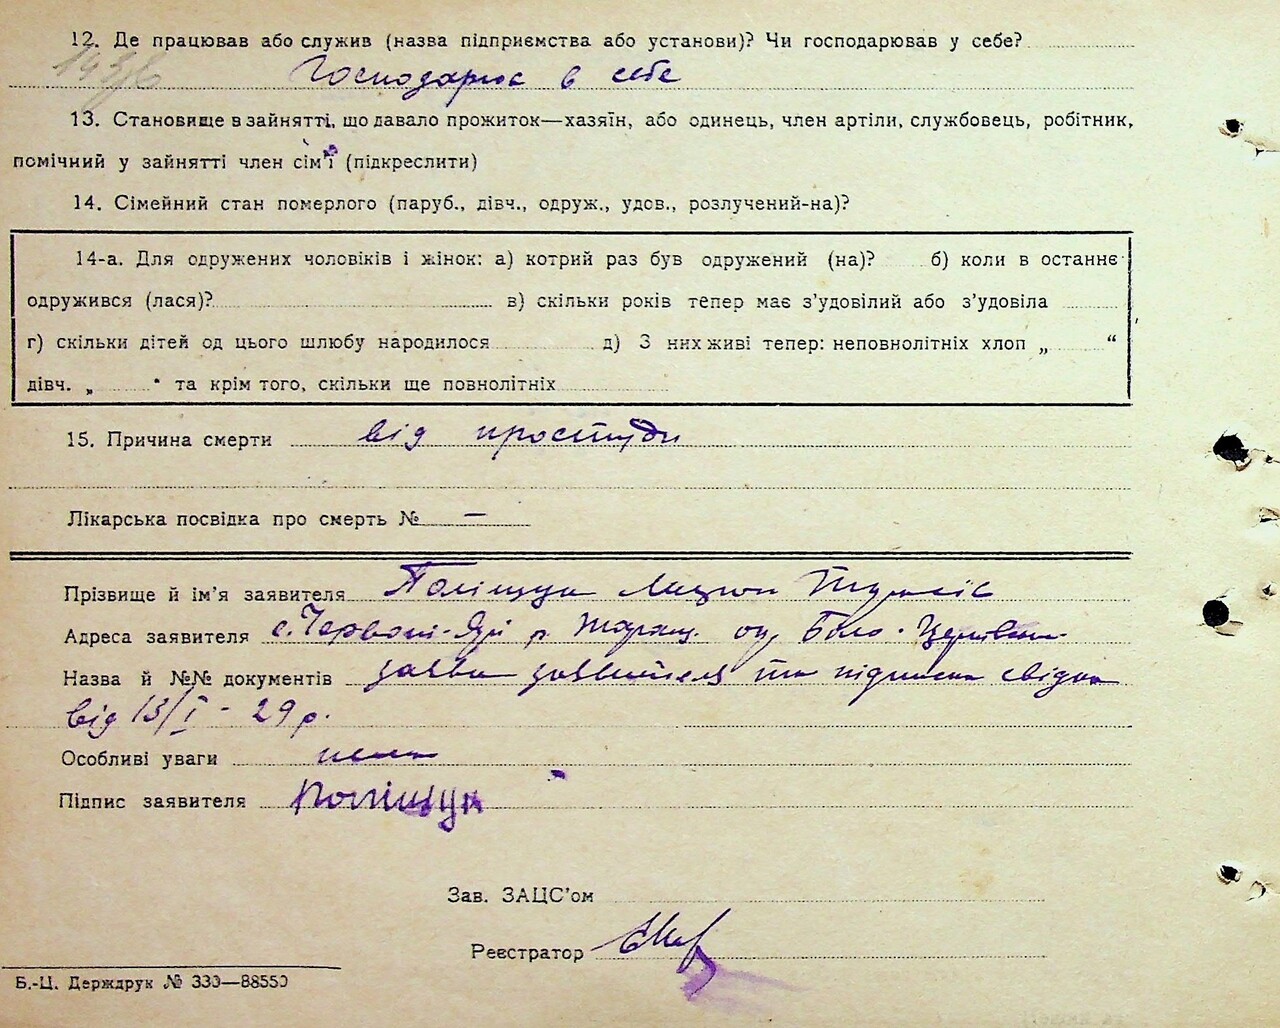 12. Де працював або служив (назва підприємства або установи)? Чи господарював у себе?
Господарює в себе
13. Становище в зайнятті, що давало прожиток—хазяїн, або одинець, член артіли, службовець, робітник,
помічний у зайнятті член сім'ї (підкреслити)
14. Сімейний стан померлого (паруб., дівч., одруж., удов., розлучений-на)?
14-а. Для одружених чоловіків і жінок: а) котрий раз був одружений (на)? б) коли в останнє
одружився (лася)? в) скільки років тепер має з'удовілий або з'удовіла
г) скільки дітей од цього шлюбу народилося д) З них живі тепер: неповнолітніх хлоп „ “
дівч. „ “ та крім того, скільки ще повнолітніх
15. Причина смерти від простуди
Лікарська посвідка про смерть № —
Прізвище й ім'я заявителя Поліщук
Адреса заявителя с. Червоні-Яри р. Таращ. ок. Біло-Церківськ.
Назва й №№ документів заява заявителя та підписка свідків
від 13/I - 29 р.
Особливі уваги нема
Підпис заявителя Поліщук
Зав. ЗАЦС'ом
Реєстратор
Б.-Ц. Держдрук № 330—88550